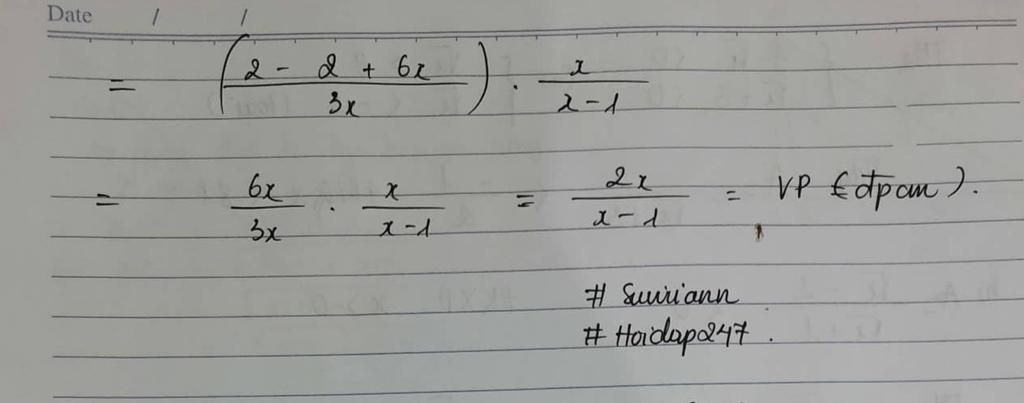 Date / /
= (2 - 2 + 6x / 3x) . x / x - 1
= 6x / 3x . x / x - 1 = 2x / x - 1 = VP (đpcm).
# Suwiriann
# Hoidap247.